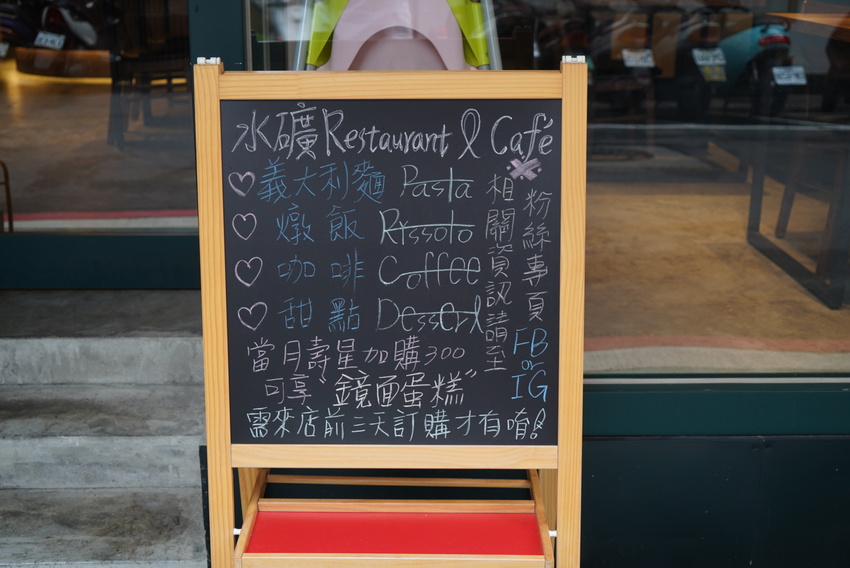 水礦Restaurant & Café
♡義大利麵 Pasta
♡燉飯 Rissoto
♡咖啡 Coffee
♡甜點 Dessert
※相關資訊請至
粉絲專頁
FB
or
IG
當月壽星加購300
可享"鏡面蛋糕"
需來店前三天訂購才有唷!